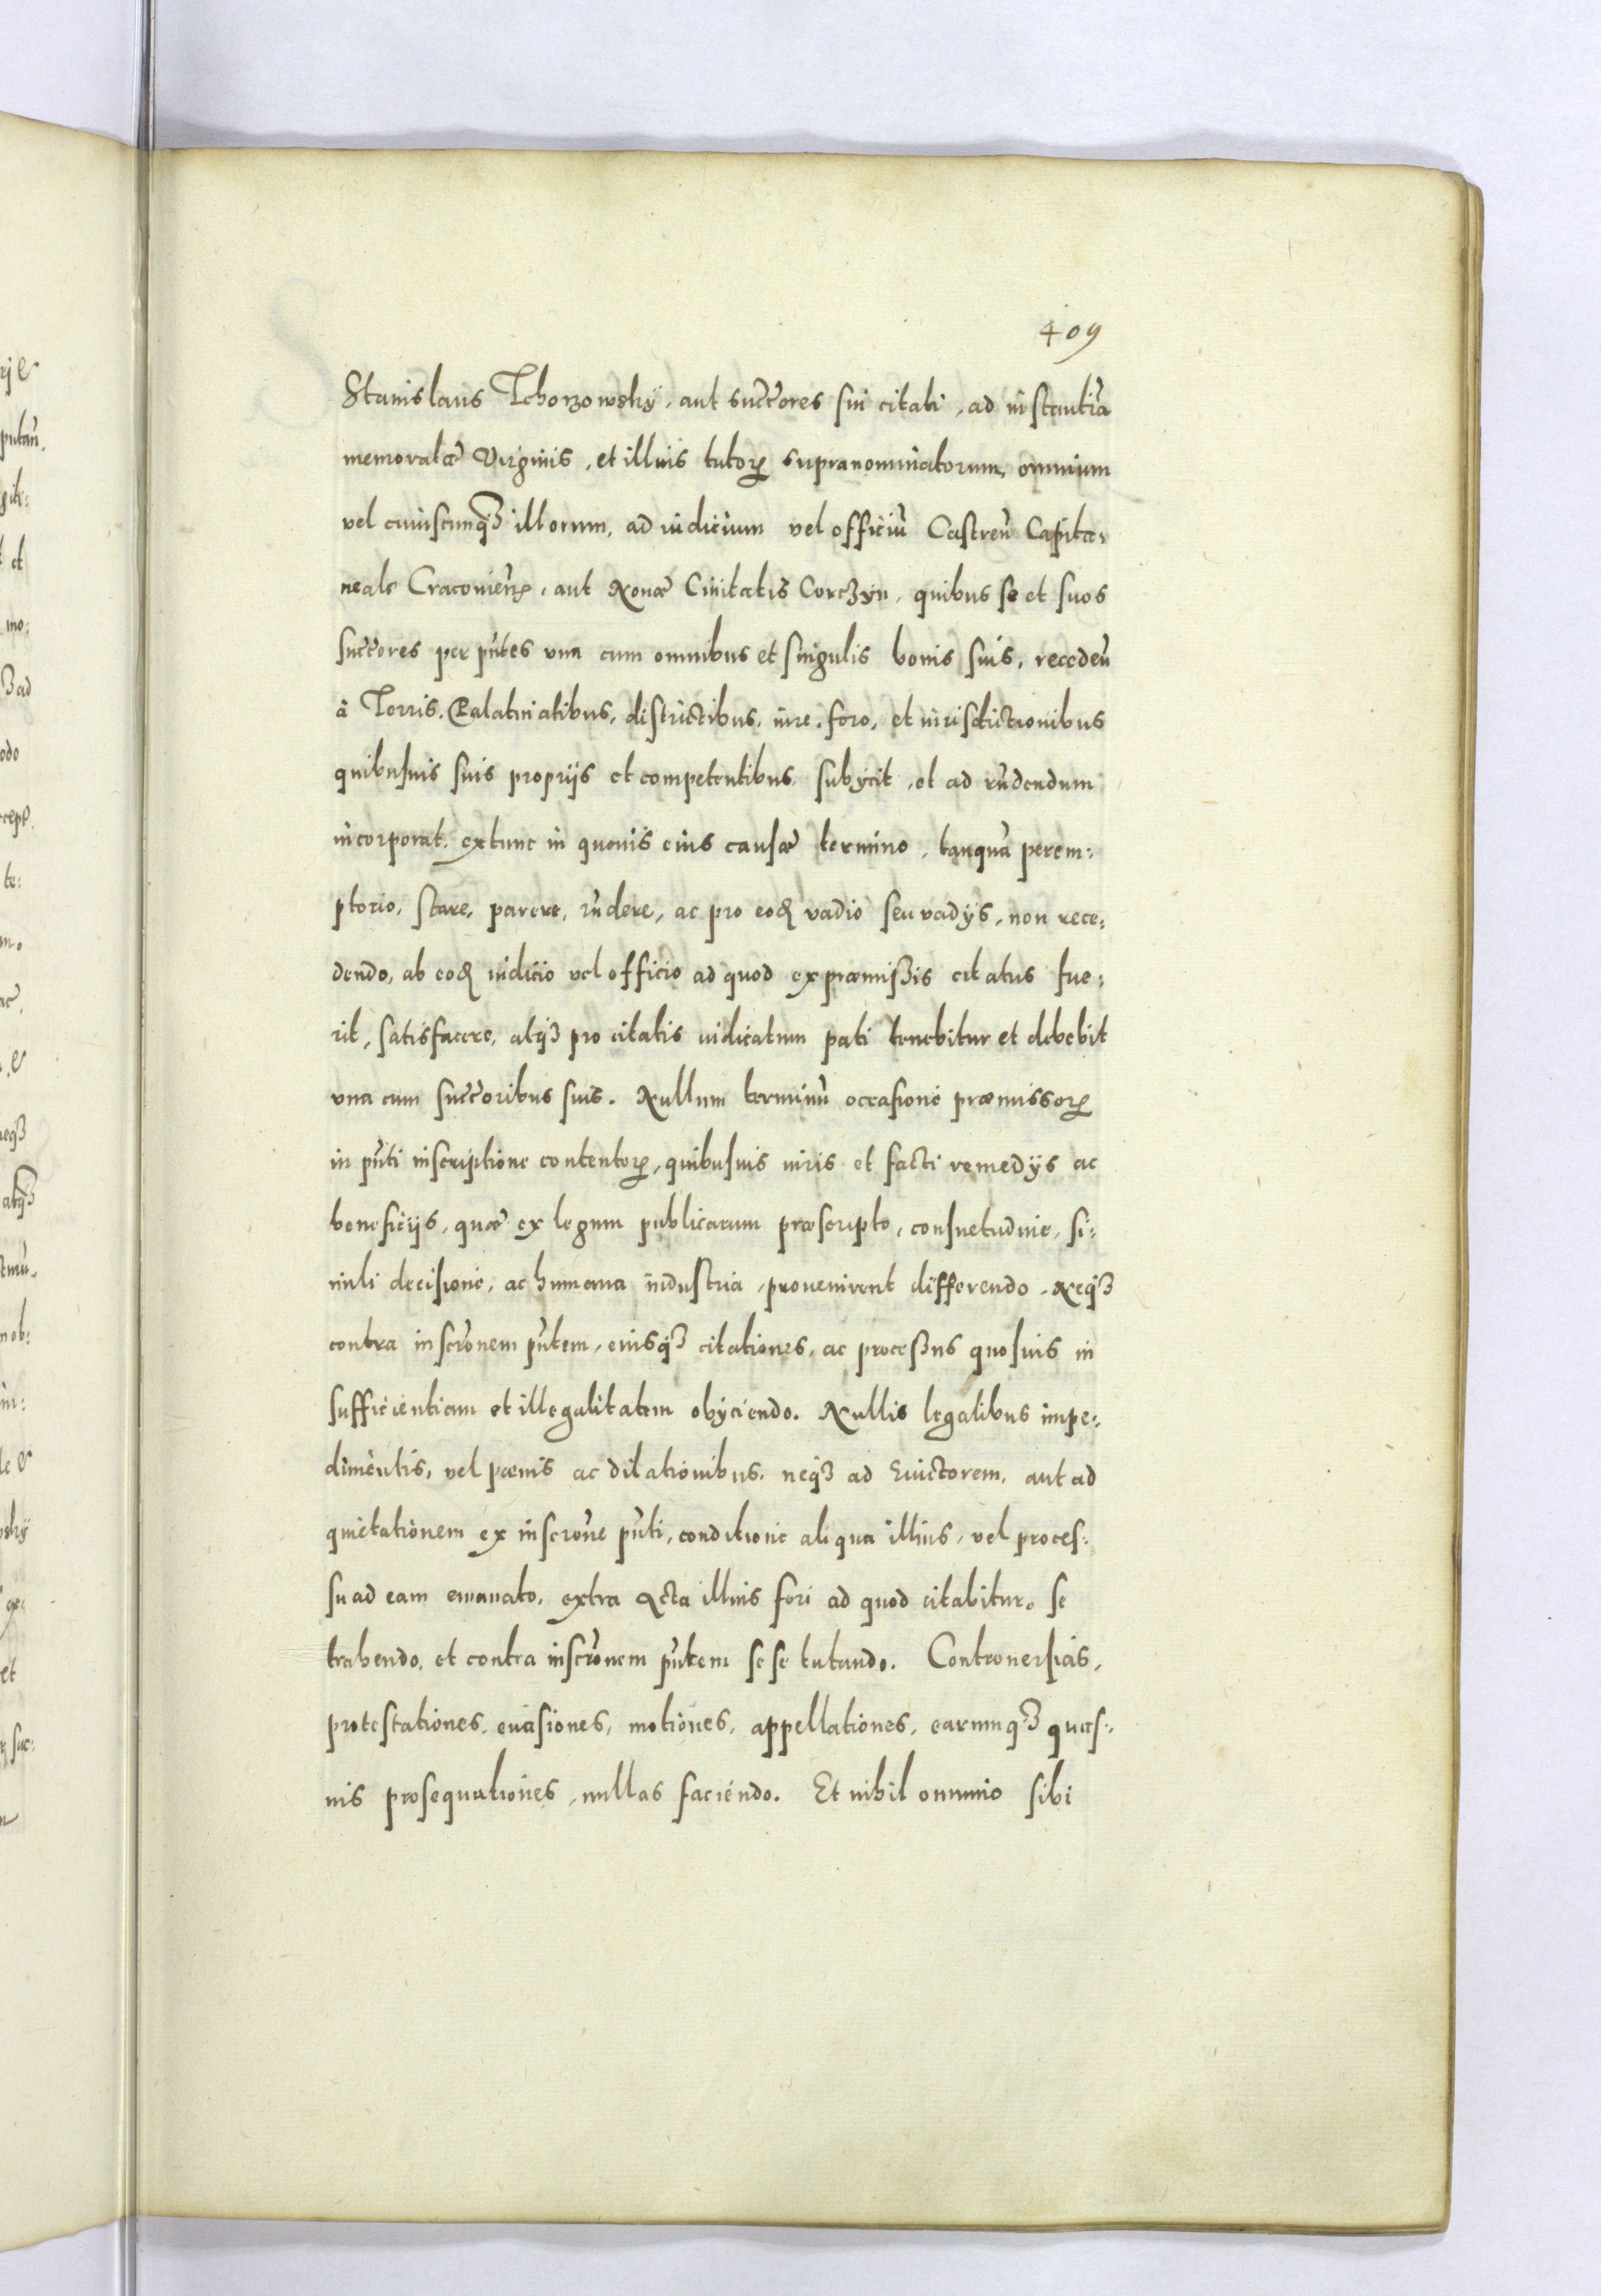 409
Stanislaus Tchorzowsky, aut succ̃ores sui citati, ad instantiã
memoratæ Virginis, et illius tutorꝝ supranominatorum, omnium
vel cuiuscunqȝ illorum, ad iudicium vel officiũ Castreñ Capita,
neale Cracouieñ, aut Nouæ Ciuitatis Corczyn, quibus se et suos
succ̃ores per pñtes vna cum omnibus et singulis bonis suis, recedeñ
à Terris, Palatinatibus, districtibus, iure, foro, et iurisdictionibus
quibusuis suis proprijs et competentibus, subycit, et ad rñdendum
incorporat. extunc in quouis eius causæ termino, tanquã perem:
ptorio, stare, parere, rñdere, ac pro eodꝫ vadio seu vadys, non rece:
dendo, ab eodꝫ iudicio vel officio ad quod ex præmißis citatus fue:
rit, satisfacere, atqȝ pro citatis iudicatum pati tenebitur et debebit
vna cum succ̃oribus suis. Nullum terminũ occasione præmissorꝝ
in pñti inscriptione contentorꝝ, quibusuis iuris et facti remedys ac
beneficijs, quæ ex legum publicarum præscripto, consuetudine, si:
mili decisione, ac humana industria, prouenirent differendo. Neqȝ
contra inscrõnem pñtem, eiusqȝ citationes, ac proceßus quosuis in
sufficientiam et illegalitatem obyciendo. Nullis legalibus impe:
dimentis, vel pœnis ac dilationibus, neqȝ ad Euictorem, aut ad
quietationem ex inscrõne pñti, conditione aliqua illius, vel proces:
su ad eam emanato, extra Acta illius fori ad quod citabitur, se
trahendo, et contra inscrõnem pñtem se se tutando. Controuersias,
protestationes, euasiones, motiones, appellationes, earumqȝ quas:
uis prosequutiones, nullas faciendo. Et nihil omnino sibi